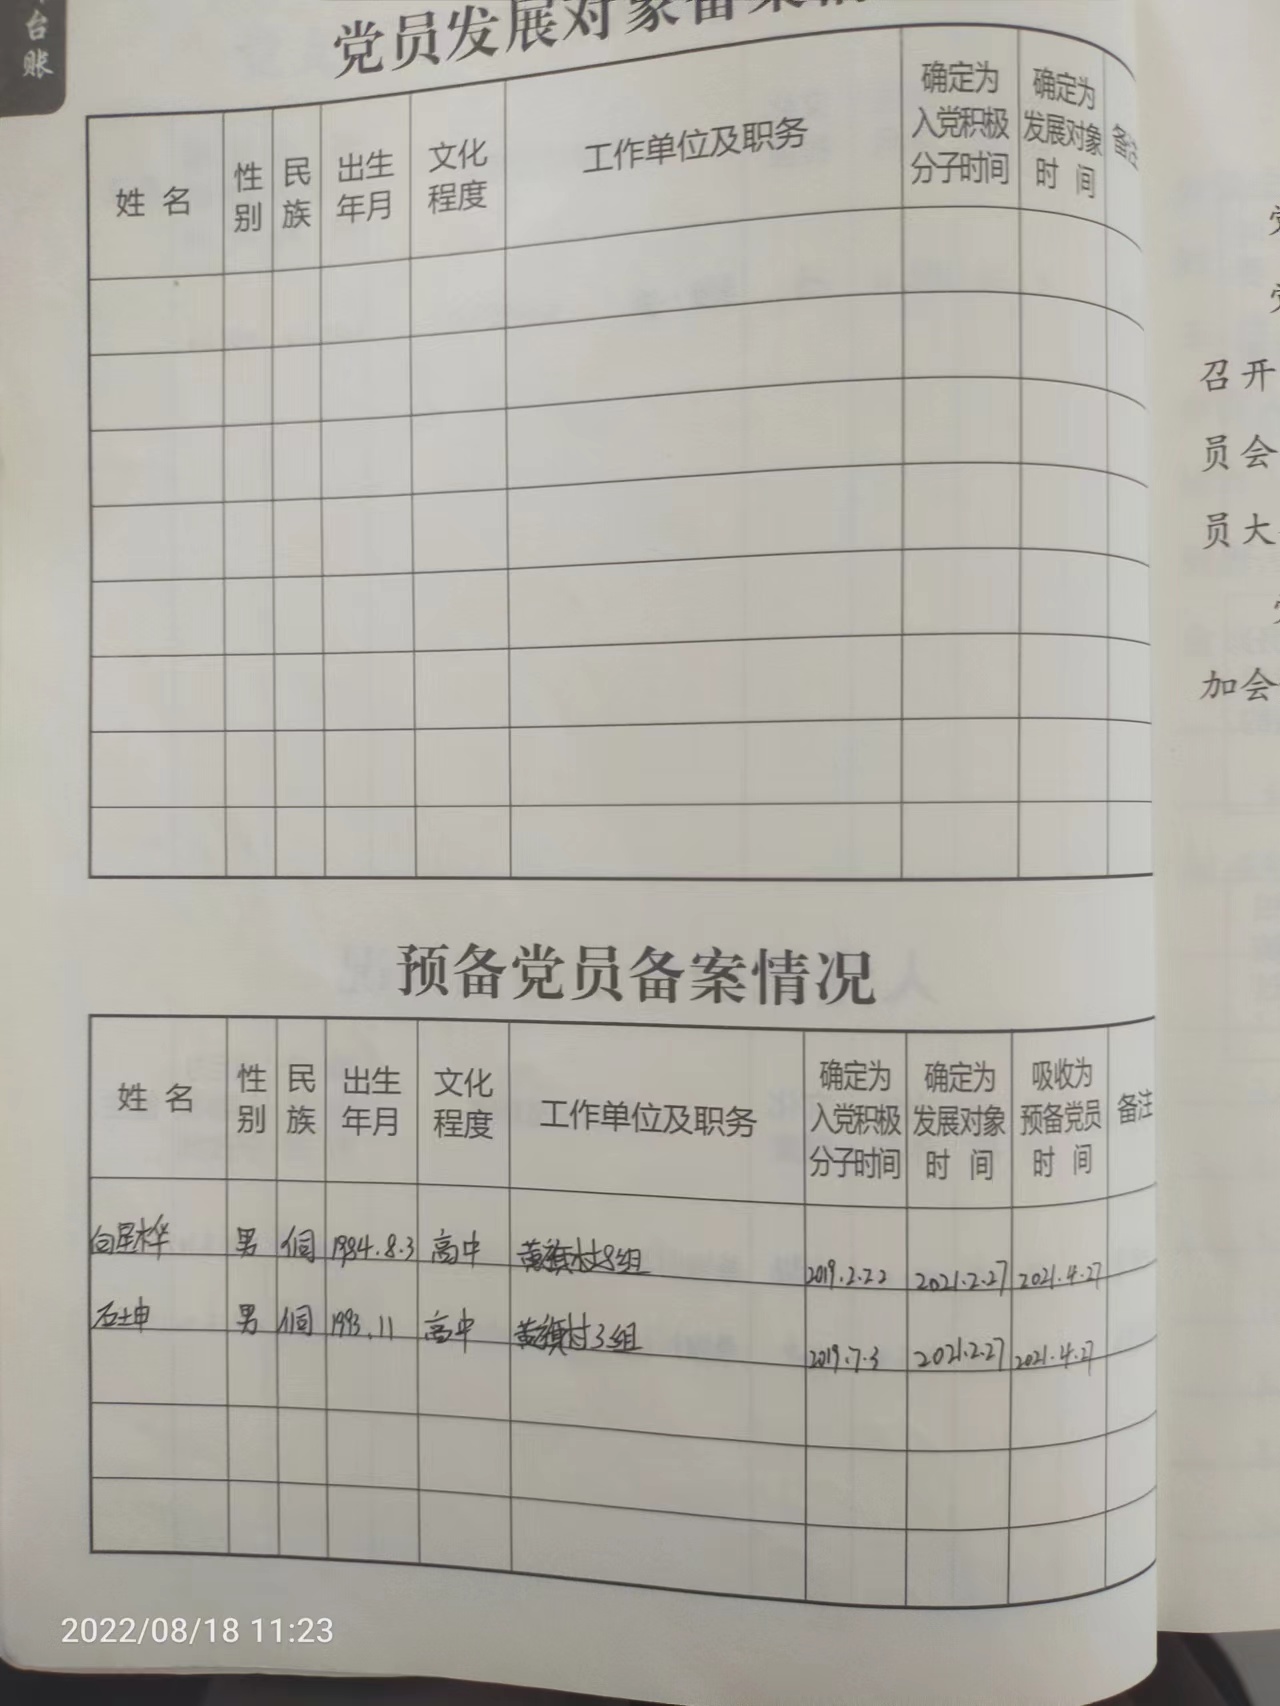 台账
党员发展对象备案情
姓名 性别 民族 出生年月 文化程度 工作单位及职务 确定为入党积极分子时间 确定为发展对象时间 备注
预备党员备案情况
姓名 性别 民族 出生年月 文化程度 工作单位及职务 确定为入党积极分子时间 确定为发展对象时间 吸收为预备党员时间 备注
男 侗 1984.8.3 高中 村8组 2019.2.22 2021.2.27 2021.4.27
石士申 男 侗 1993.11 高中 村3组 2019.7.3 2021.2.27 2021.4.27
召开
员会
员大
加会
2022/08/18 11:23